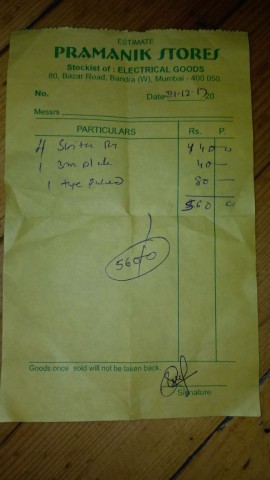 ESTIMATE
PRAMANIK STORES
Stockist of : ELECTRICAL GOODS
80, Bazar Road, Bandra (W), Mumbai - 400 050.
No. Date 31-12-17 20
Messrs
PARTICULARS Rs. P.
4 440 -
1 3m plate 40 -
1 80 -
560
560/0
Goods once sold will not be taken back.
Signature